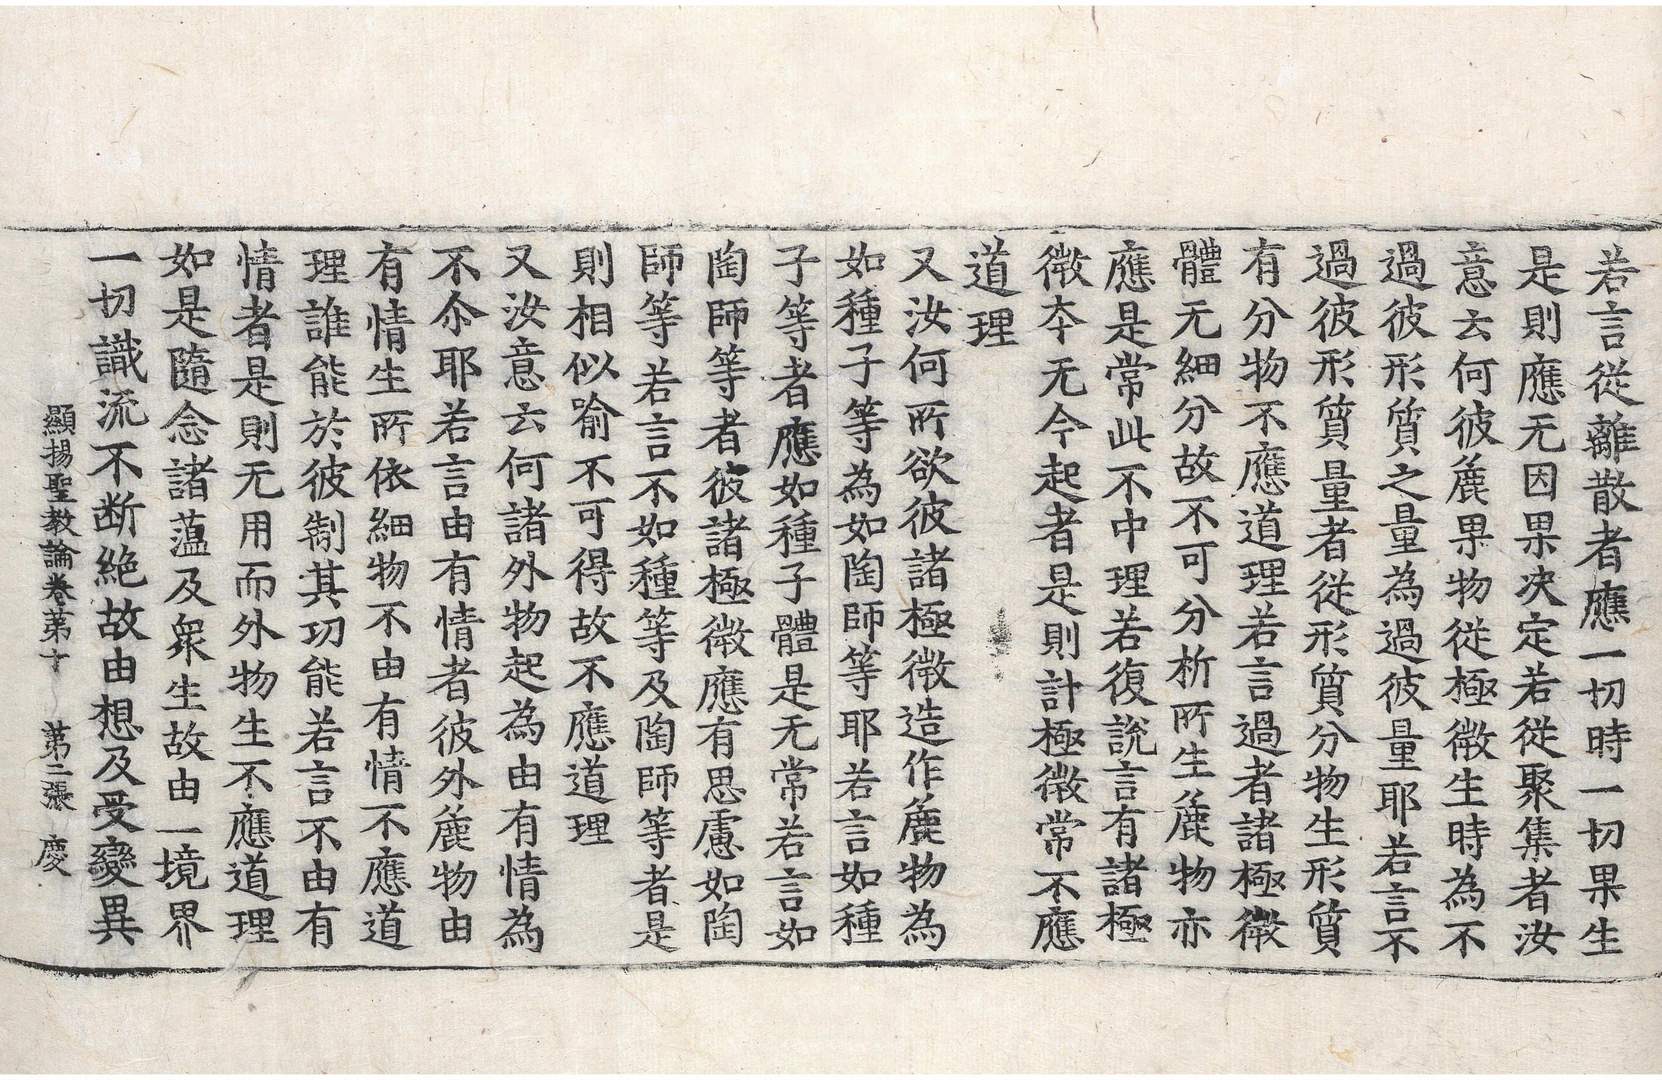 若言從離散者應一切時一切果生
是則應无因果决定若從聚集者汝
意云何彼麁果物從極微生時為不
過彼形質之量為過彼量耶若言不
過彼形質量者從形質分物生形質
有分物不應道理若言過者諸極微
體无細分故不可分析所生麁物亦
應是常此不中理若復說言有諸極
微夲无今起者是則計極微常不應
道理
又汝何所欲彼諸極微造作麁物為
如種子等為如陶師等耶若言如種
子等者應如種子體是无常若言如
陶師等者彼諸極微應有思慮如陶
師等若言不如種等及陶師等者是
則相似喻不可得故不應道理
又汝意云何諸外物起為由有情為
不尒耶若言由有情者彼外麁物由
有情生所依細物不由有情不應道
理誰能於彼制其功能若言不由有
情者是則无用而外物生不應道理
如是隨念諸薀及衆生故由一境界
一切識流不断絶故由想及受變異
顯揚聖教論卷苐十 苐二張 慶